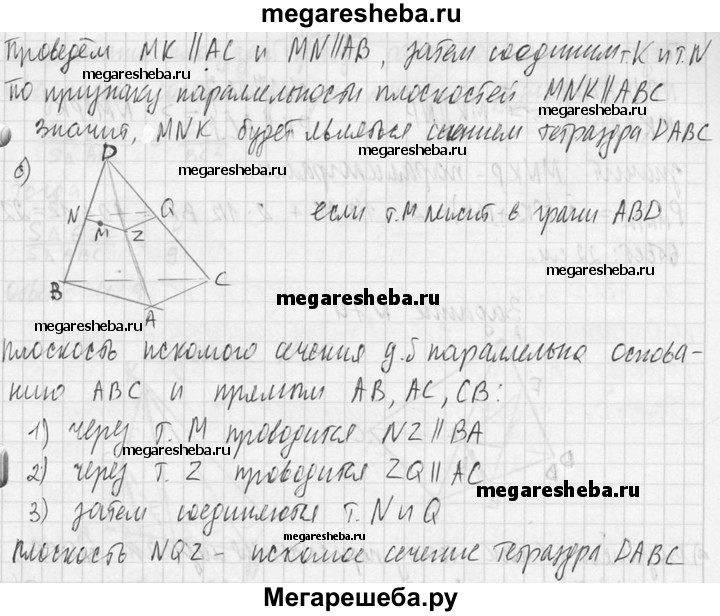 megaresheba.ru
Проведём MK || AC и MN || AB, затем соединим т. K и т. N
megaresheba.ru
По признаку параллельности плоскостей MNK || ABC
megaresheba.ru
Значит, MNK будет являться сечением тетраэдра DABC
б)
D
megaresheba.ru
megaresheba.ru
N
Q
M
Z
если т. M лежит в грани ABD
B
C
A
megaresheba.ru
megaresheba.ru
Плоскость искомого сечения д.б параллельна основа-
нию ABC и прямым AB, AC, CB:
megaresheba.ru
1) через т. M проводится NZ || BA
megaresheba.ru
2) через т. Z проводится ZQ || AC
megaresheba.ru
3) затем соединяются т. N и Q
megaresheba.ru
Плоскость NQZ - искомое сечение тетраэдра DABC
megaresheba.ru
Мегарешеба.ру